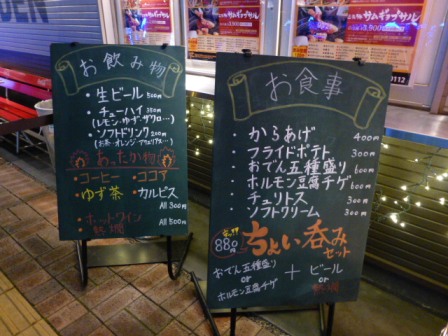 お飲み物
・生ビール 500円
・チューハイ 350円
(レモン・ゆず・ザクロ…)
・ソフトドリンク 200円
あったか物
・コーヒー ・ココア
・ゆず茶 ・カルピス
All 300円
・ホットワイン
・熱燗
All 500円
お食事
・からあげ 400円
・フライドポテト 300円
・おでん五種盛り 600円
・ホルモン豆腐チゲ 600円
・チュリトス 300円
・ソフトクリーム 300円
880円
ちょい呑み
セット
おでん五種盛り
or
ホルモン豆腐チゲ
+
ビール
or
熱燗
サムギョプサル
サムギョプサル